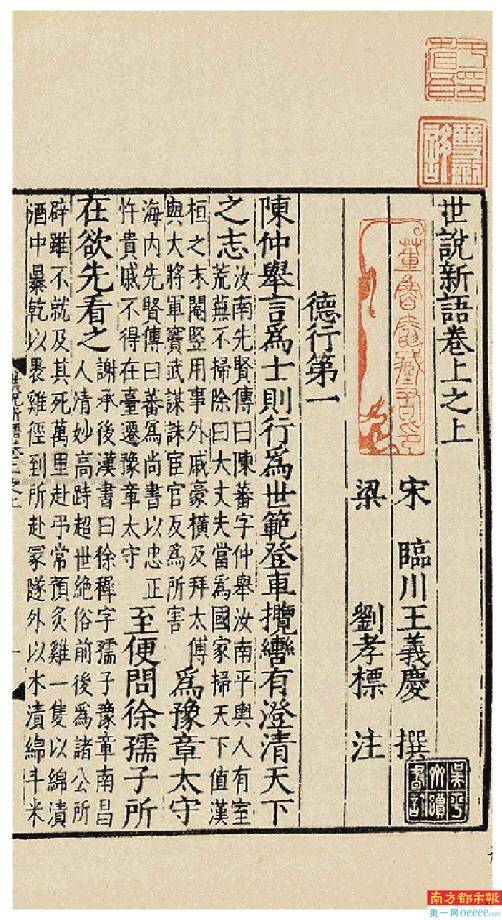 世說新語卷上之上
宋 臨川王義慶 撰
梁 劉孝標 注
德行第一
陳仲舉言為士則行為世範登車攬轡有澄清天下
之志
汝南先賢傳曰陳蕃字仲舉汝南平輿人有室
荒蕪不掃除曰大丈夫當為國家掃天下值漢
桓之末閹豎用事外戚豪橫及拜太傅
與大將軍竇武謀誅宦官反為所害
為豫章太守
海內先賢傳曰蕃為尚書以忠正
忤貴戚不得在臺遷豫章太守
至便問徐孺子所
在欲先看之
謝承後漢書曰徐穉字孺子豫章南昌
人清妙高跱超世絕俗前後為諸公所
辟雖不就及其死萬里赴弔常預炙雞一隻以綿漬
酒中暴乾以裹雞徑到所赴冢隧外以水漬綿斗米
南方都市報
奥一网oeeee.com